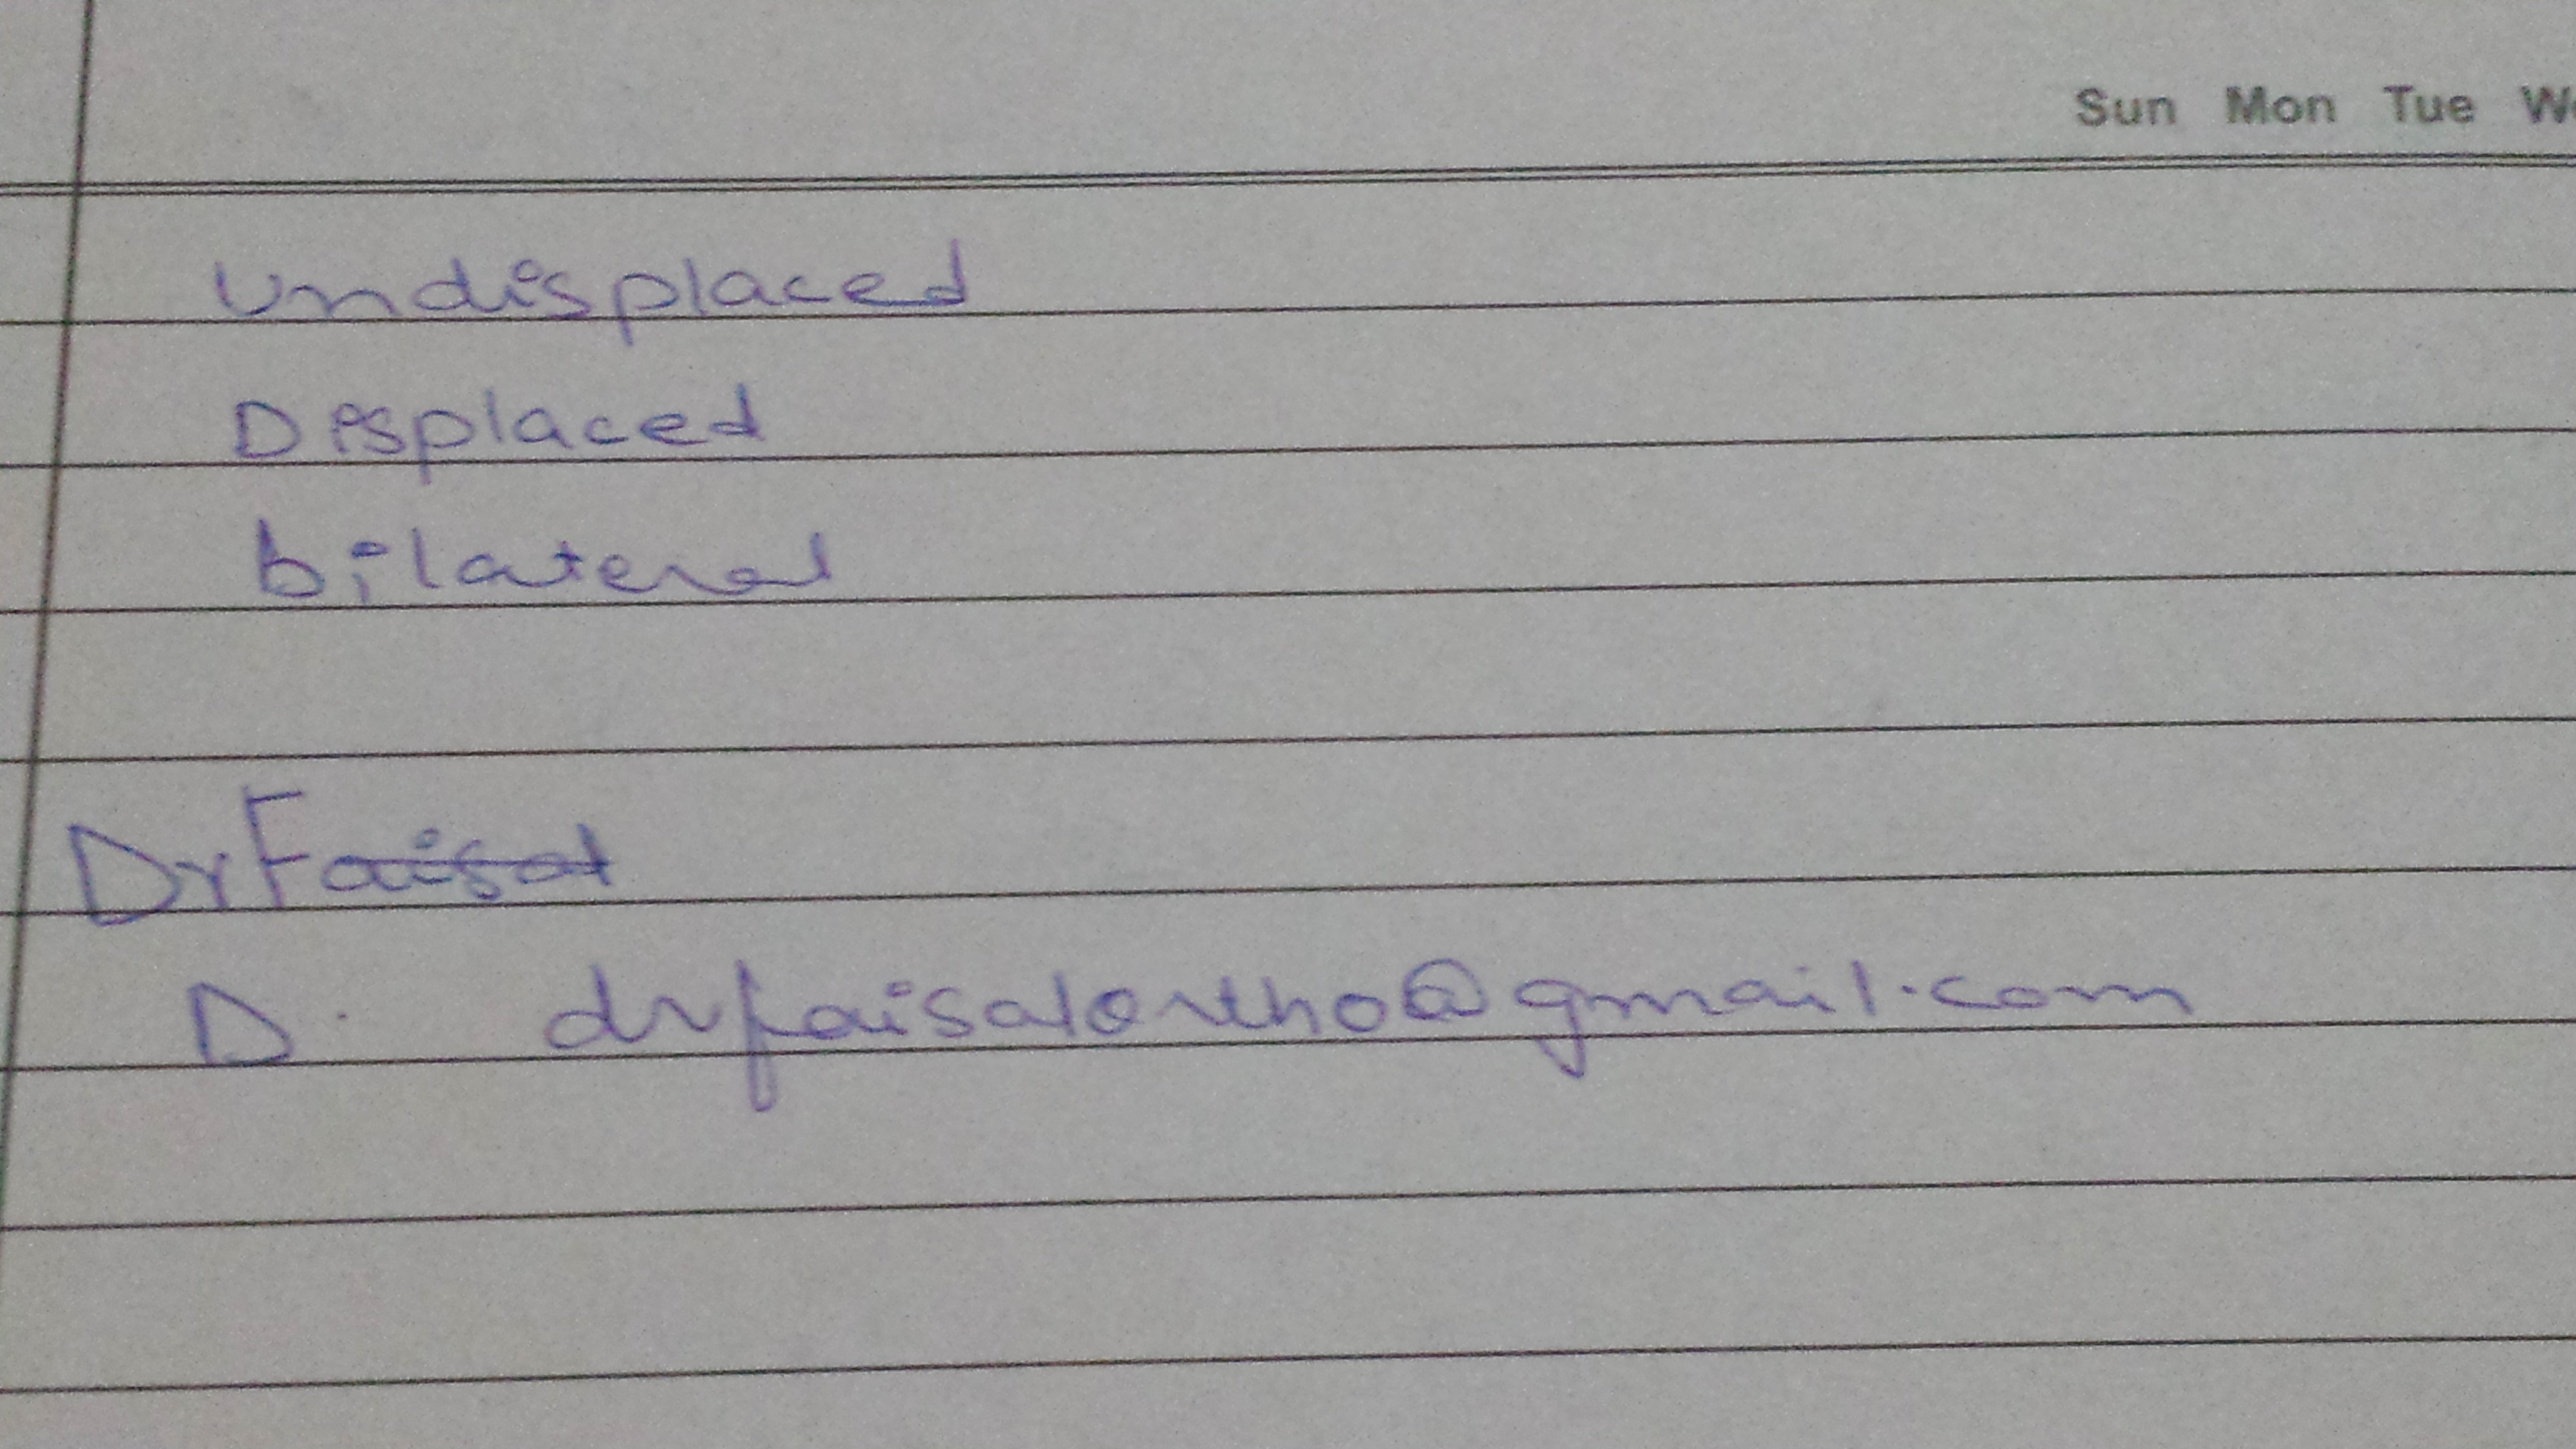 Sun Mon Tue We
Undisplaced
Displaced
bilateral
Dr Faisal
D. drfaisalortho@gmail.com